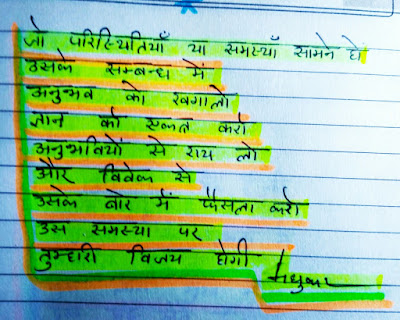 जो परिस्थितियाँ या समस्याँ सामने हो
उसके सम्बन्ध में
अनुभव को खगालो
ज्ञान को एकत करो
अनुभवियों से राय लो
और विवेक से
उसके बारे में फैसला करो
उस समस्या पर
तुम्हारी विजय होगी
मधुकर